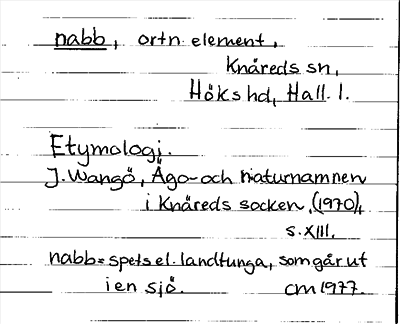 nabb, ortn element,
Knäreds sn,
Höks hd, Hall. l.
Etymologi.
J. Wangö, Ägo- och naturnamnen
i Knäreds socken, (1970),
s. XIII.
nabb = spets el. landtunga, som går ut
i en sjö. cm 1977.